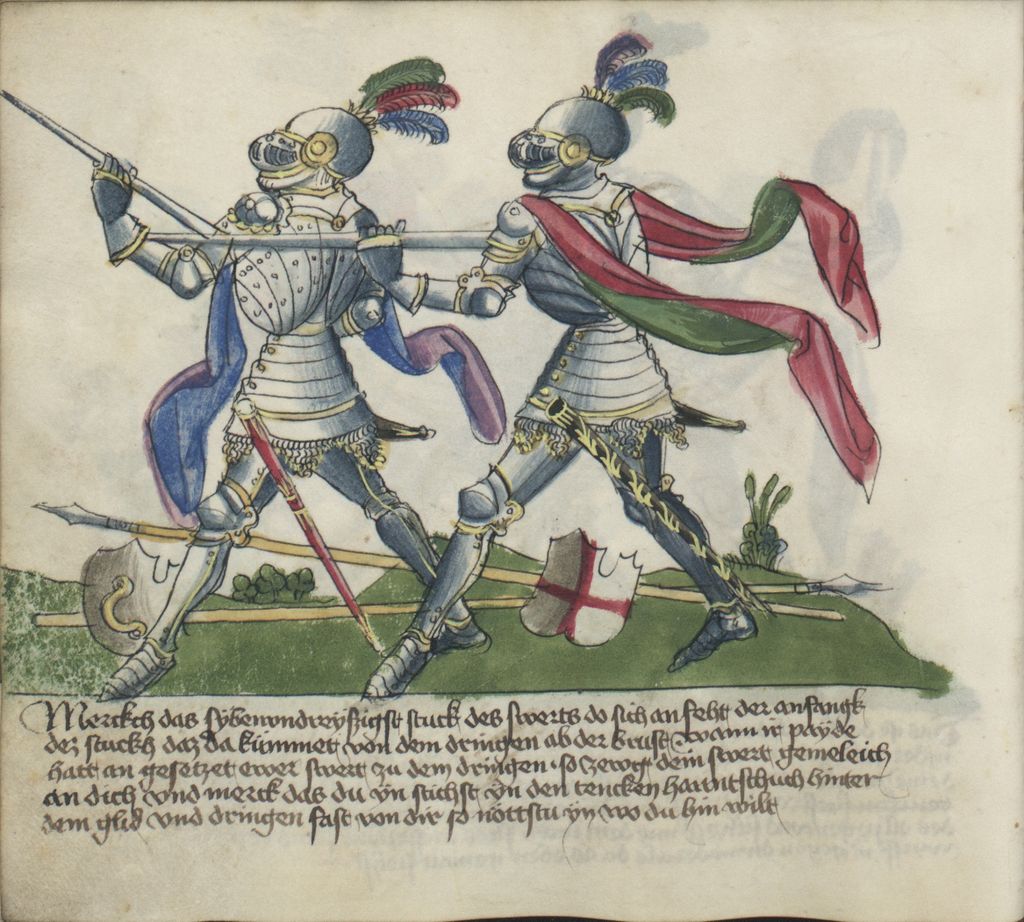 Merckch das sybenvndreyssigst stuck des swertz do sich an feht der anfangk
dez stuckh daz da kümmet von dem dringen ab der brust wann ir payde
hatt an gesetzet ewer swert zu dem dringen · so zewg dein swert gemeleich
an dich vnd merck das du yn stichst yn den tencken hanntschuch hinter
dem glid vnd dringen fast von dir so nöttstu yn wo du hin wilt